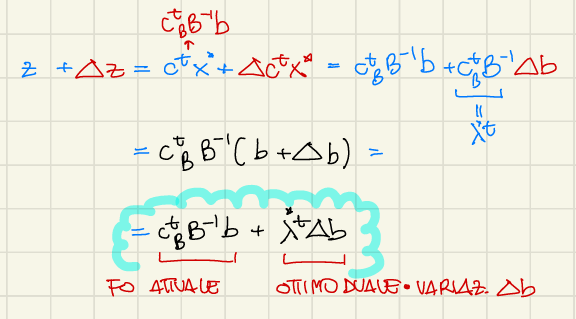 c^t_B B^-1 b
z + Δz = c^t x* + Δc^t x* = c^t_B B^-1 b + c^t_B B^-1 Δb
= λ^t
= c^t_B B^-1 (b + Δb) =
= c^t_B B^-1 b + λ*^t Δb
FO ATTUALE OTTIMO DUALE • VARIAZ. Δb